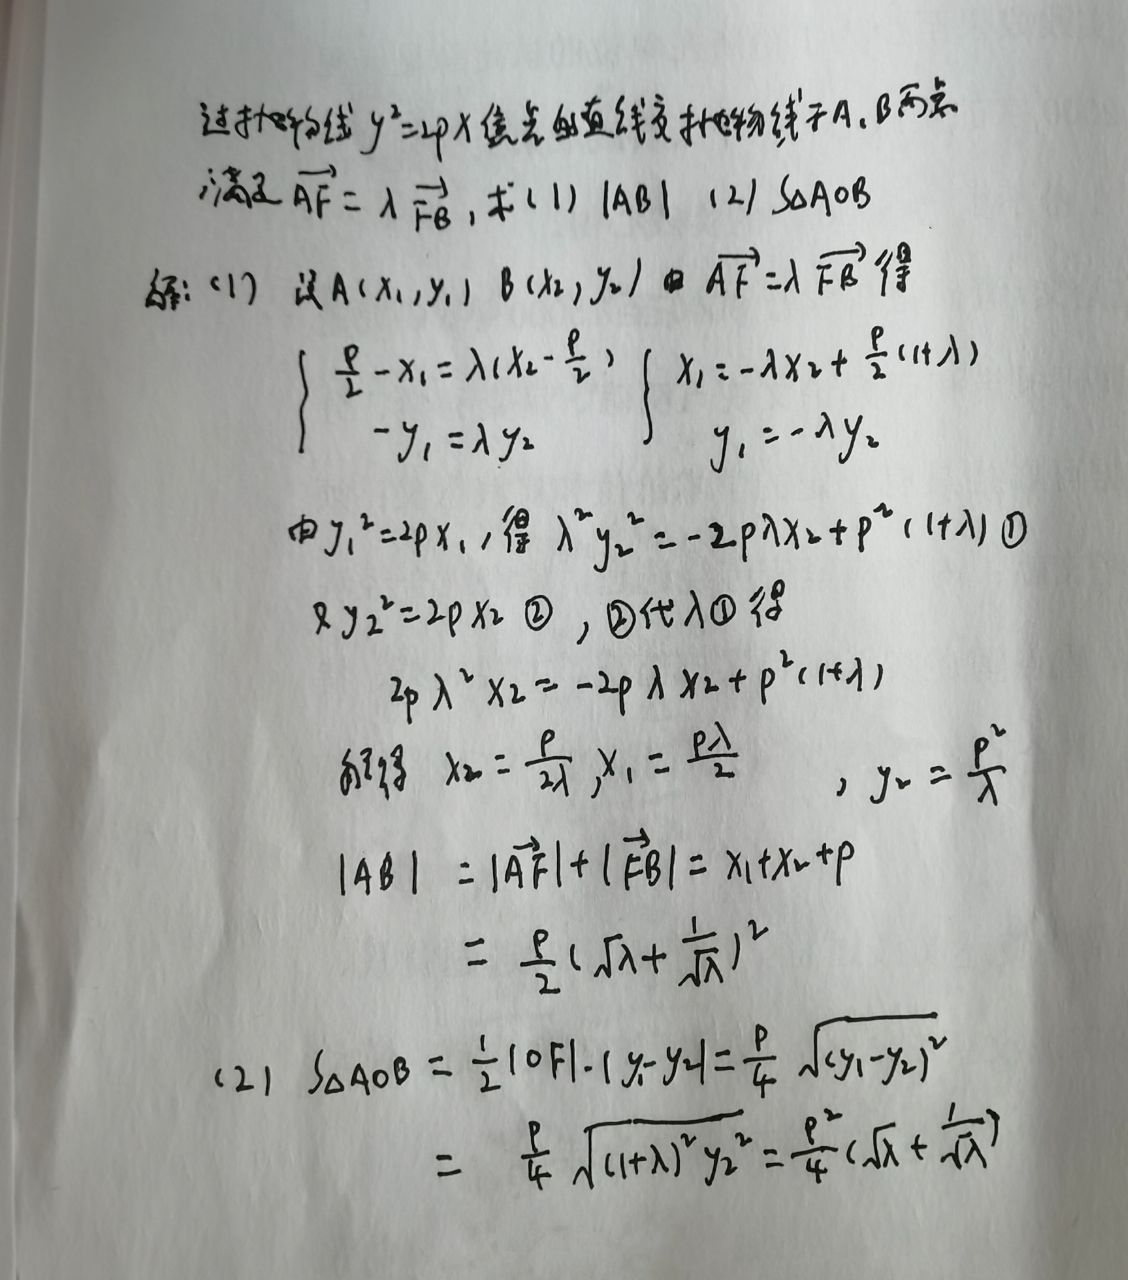 过抛物线 y²=2px 焦点的直线交抛物线于A、B两点
满足 \overrightarrow{AF} = λ \overrightarrow{FB}, 求(1) |AB| (2) S△AOB
解: (1) 设A(x₁,y₁) B(x₂,y₂) 由 \overrightarrow{AF}=λ\overrightarrow{FB} 得
{ p/2 - x₁ = λ(x₂ - p/2) { x₁ = -λx₂ + p/2 (1+λ)
-y₁ = λy₂ y₁ = -λy₂
由 y₁²=2px₁, 得 λ²y₂² = -2pλx₂ + p²(1+λ) ①
又 y₂²=2px₂ ②, ②代入①得
2pλ²x₂ = -2pλx₂ + p²(1+λ)
解得 x₂ = p/2λ, x₁ = pλ/2 , y₂ = p²/λ
|AB| = |\overrightarrow{AF}| + |\overrightarrow{FB}| = x₁+x₂+p
= p/2 (√λ + 1/√λ)²
(2) S△AOB = 1/2 |OF|·|y₁-y₂| = p/4 √(y₁-y₂)²
= p/4 √(1+λ)²y₂² = p²/4 (√λ + 1/√λ)